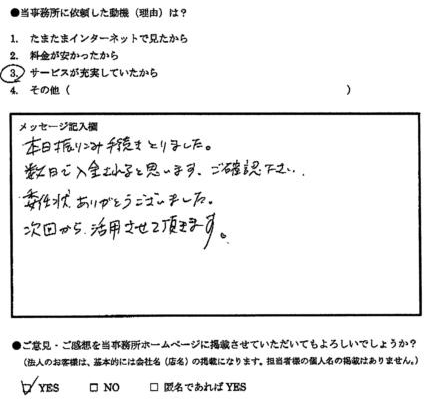 ●当事務所に依頼した動機（理由）は？
1. たまたまインターネットで見たから
2. 料金が安かったから
3. サービスが充実していたから
4. その他（　　　）
メッセージ記入欄
本日振りこみ手続きとりました。
数日で入金されると思います。ご確認下さい。
委任状ありがとうございました。
次回から活用させて頂きます。
●ご意見・ご感想を当事務所ホームページに掲載させていただいてもよろしいでしょうか？
（法人のお客様は、基本的には会社名（店名）の掲載になります。担当者様の個人名の掲載はありません。）
☑ YES □ NO □ 匿名であれば YES